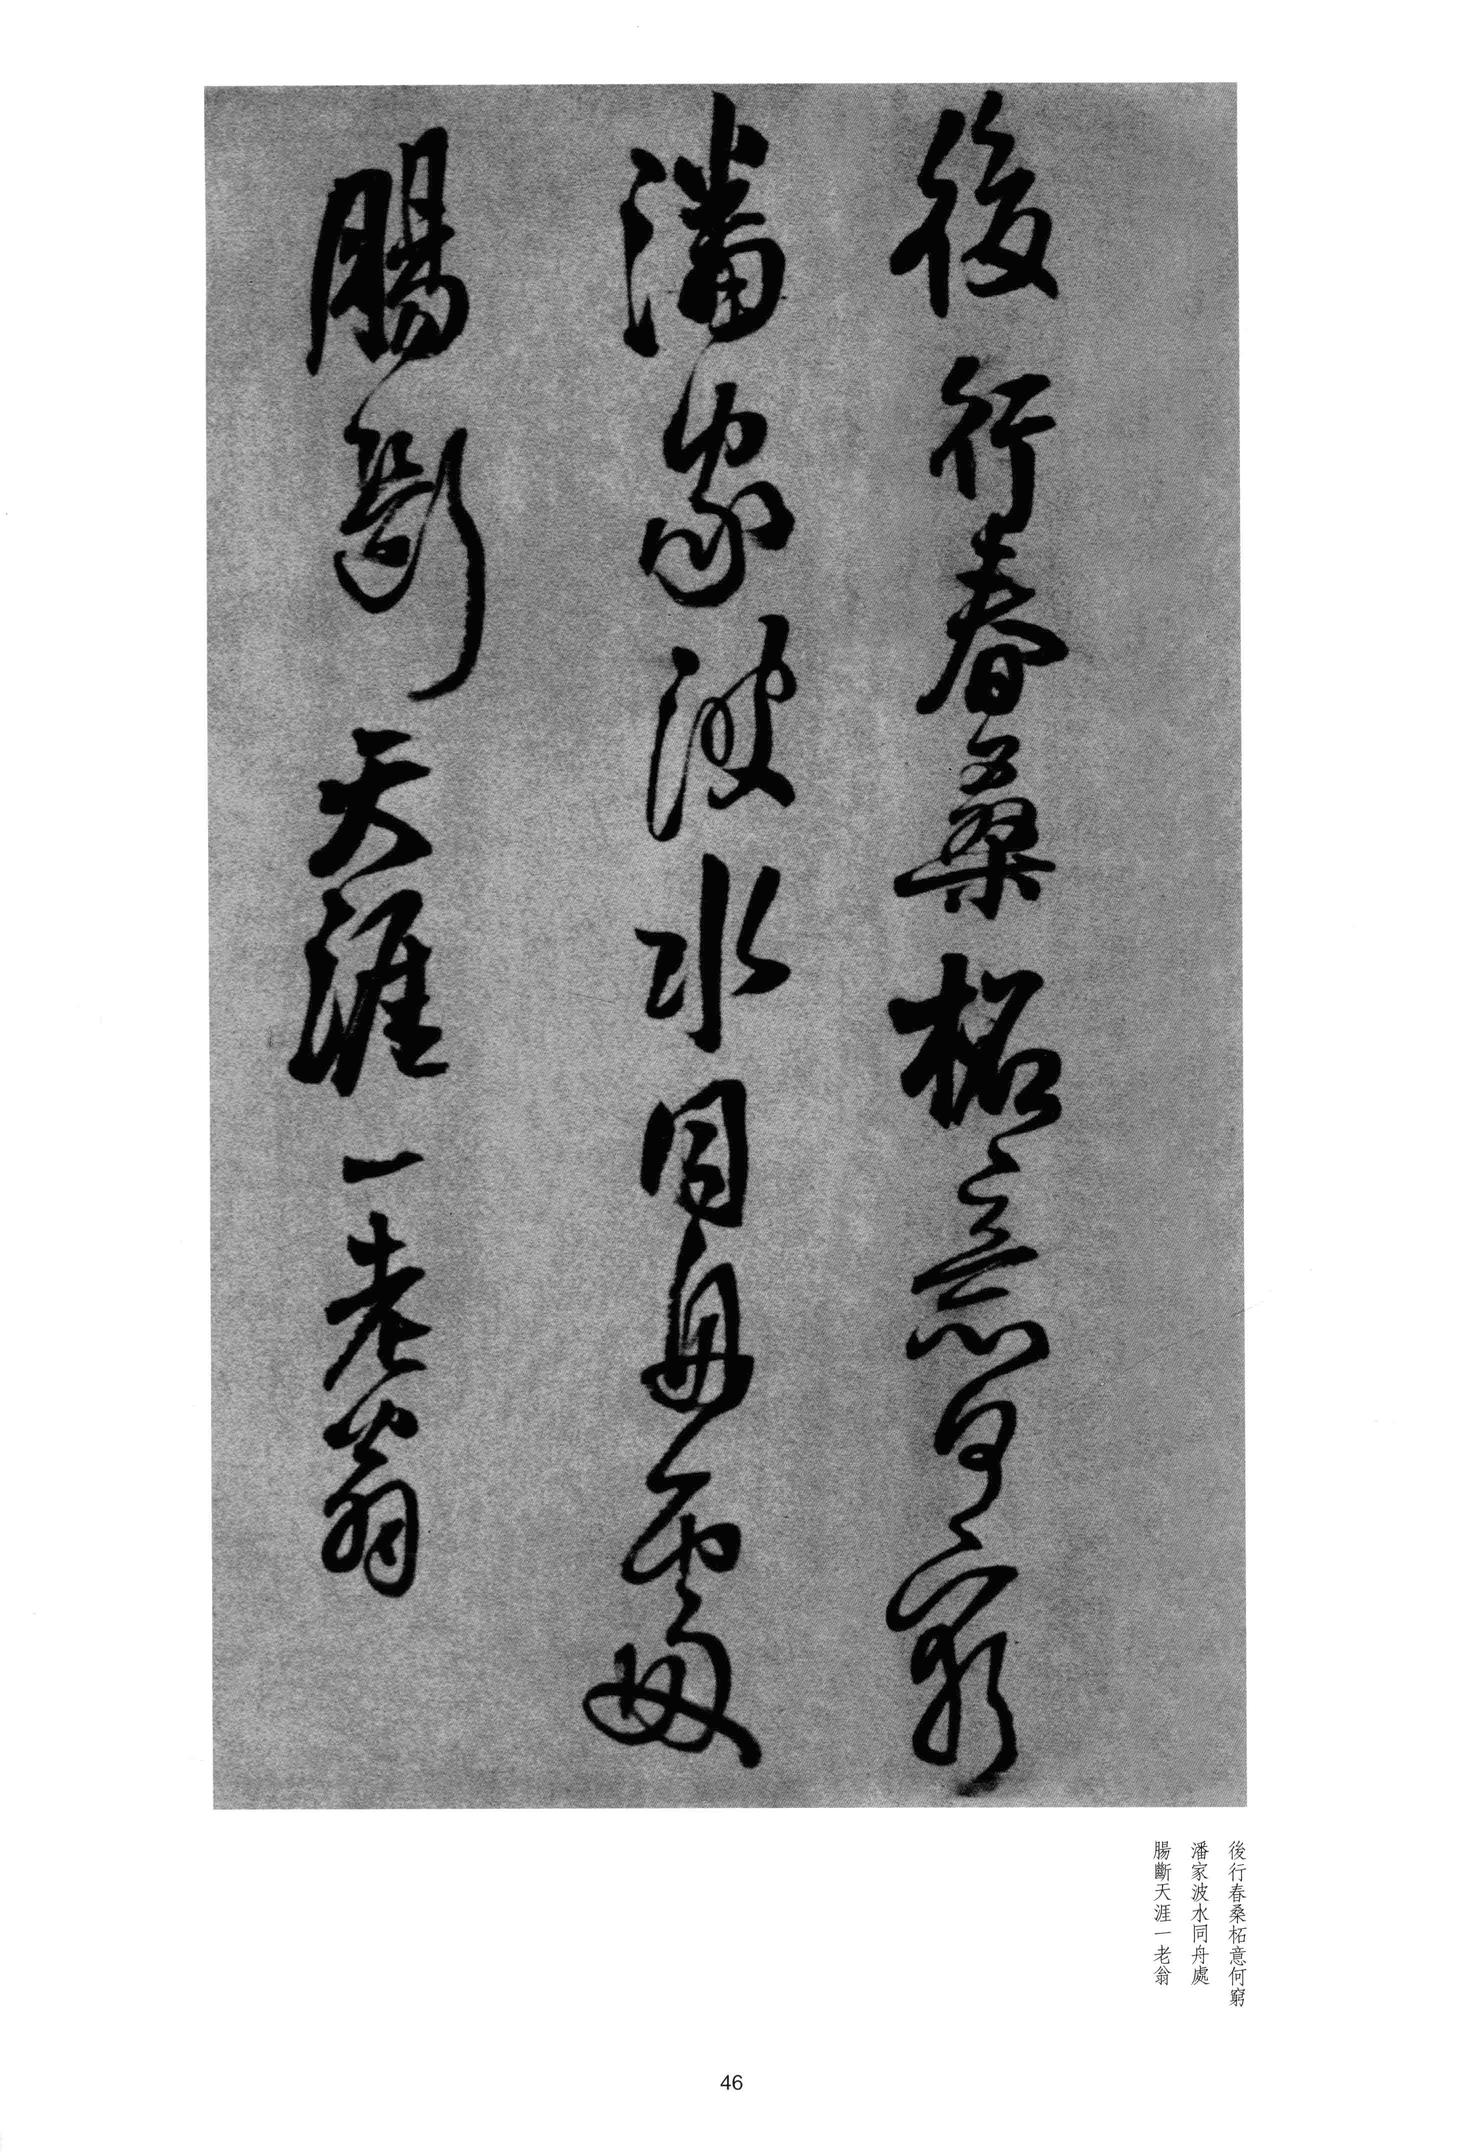 後行春桑柘意何窮
潘家波水同舟處
腸斷天涯一老翁
後行春桑柘意何窮
潘家波水同舟處
腸斷天涯一老翁
46